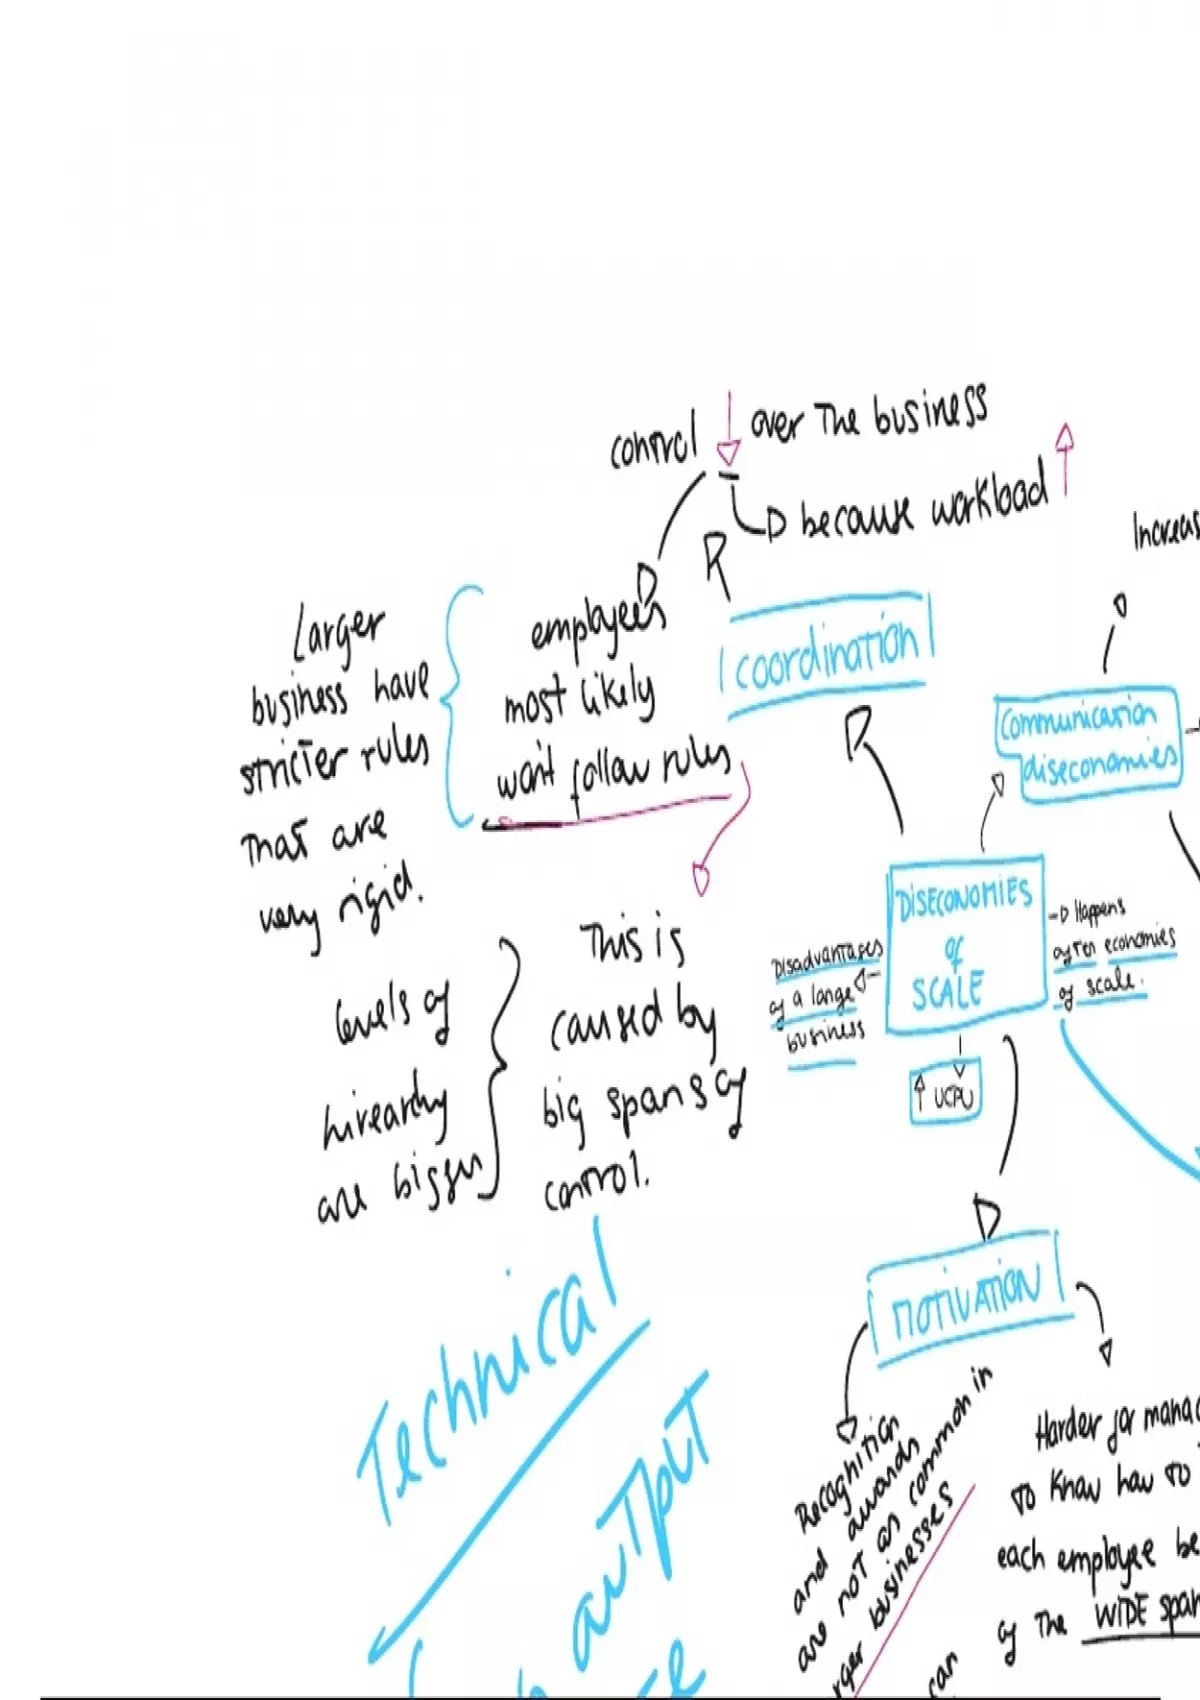 control ↓ over The business
because workload ↑
Increas
employees
most likely
won't follow rules
Larger
business have
stricter rules
That are
very rigid.
coordination
communication
diseconomies
DISECONOMIES
of
SCALE
Happens
after economies
of scale.
Disadvantages
of a large
business
↑ UCPU
This is
caused by
big spans of
control.
levels of
hirearchy
are bigger
MOTIVATION
Recoghition
and awards
are not as common in
rger businesses
Harder for manag
to know how to
each employee be
of The WIDE span
can
Technical
output